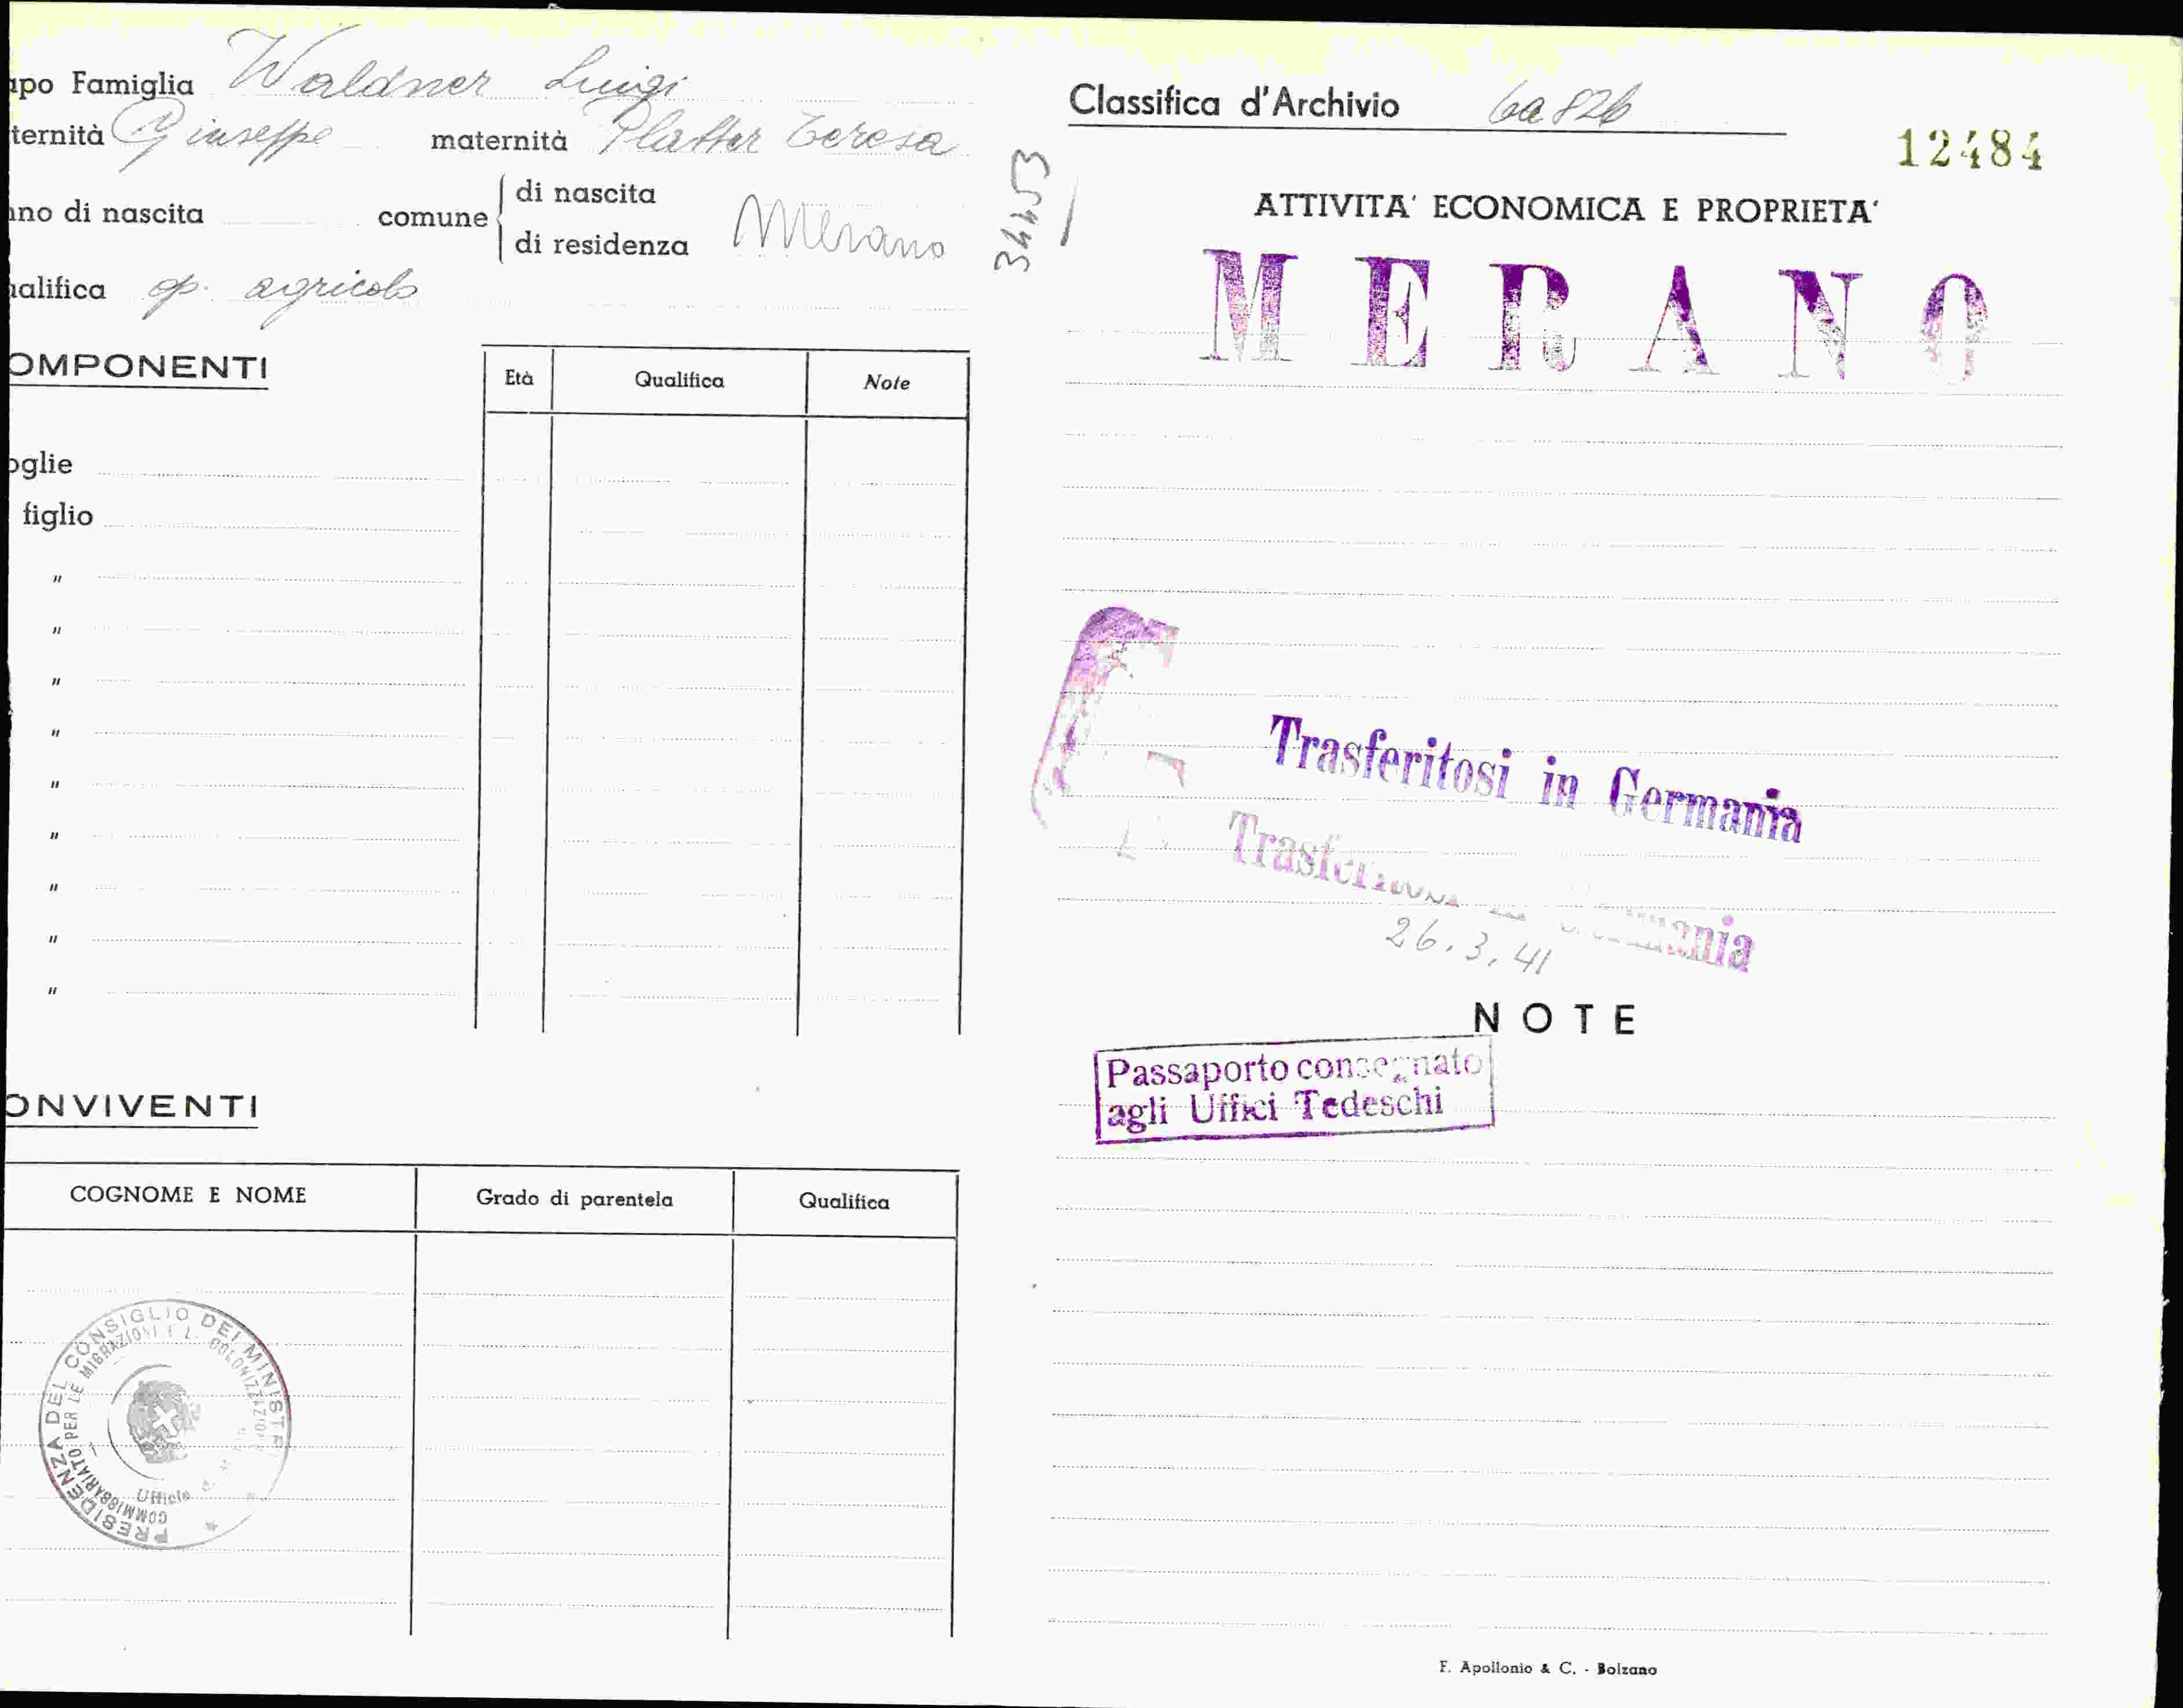 apo Famiglia Waldner Luigi
ternità Giuseppe maternità Platter Teresa
nno di nascita comune di nascita
di residenza Merano
alifica op. agricolo
OMPONENTI
Età Qualifica Note
oglie
figlio
"
"
"
"
"
"
"
"
"
ONVIVENTI
COGNOME E NOME Grado di parentela Qualifica
PRESIDENZA DEL CONSIGLIO DEI MINISTRI
COMMISSARIATO PER LE MIGRAZIONI E L COLONIZZAZIONE
Ufficio
34453
Classifica d'Archivio 6a826
12484
ATTIVITA' ECONOMICA E PROPRIETA'
MERANO
Trasferitosi in Germania
Trasferitosi in Germania
26.3.41
NOTE
Passaporto consegnato
agli Uffici Tedeschi
F. Apollonio & C. - Bolzano